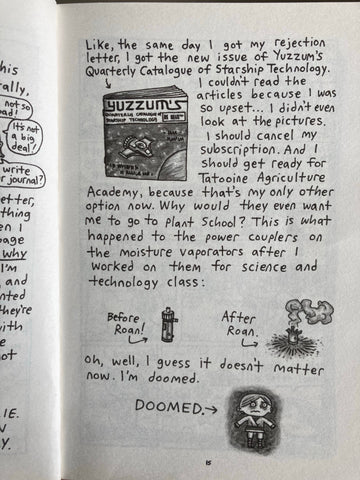 his
rally,
not so
bad!
It's not
a big
deal!
write
r journal?
etter,
thing
en I
page
why
I'm
, and
nted
they're
with
e
not
IE.
N
Y.
Like, the same day I got my rejection
letter, I got the new issue of Yuzzum's
Quarterly Catalogue of Starship Technology.
I couldn't read the
articles because I was
so upset... I didn't even
look at the pictures.
I should cancel my
subscription. And I
should get ready for
Tatooine Agriculture
Academy, because that's my only other
option now. Why would they even want
me to go to Plant School? This is what
happened to the power couplers on
the moisture vaporators after I
worked on them for science and
technology class:
YUZZUM'S
QUARTERLY CATALOGUE OF
STARSHIP TECHNOLOGY
Before
Roan!
After
Roan.
Oh, well, I guess it doesn't matter
now. I'm doomed.
DOOMED.
15